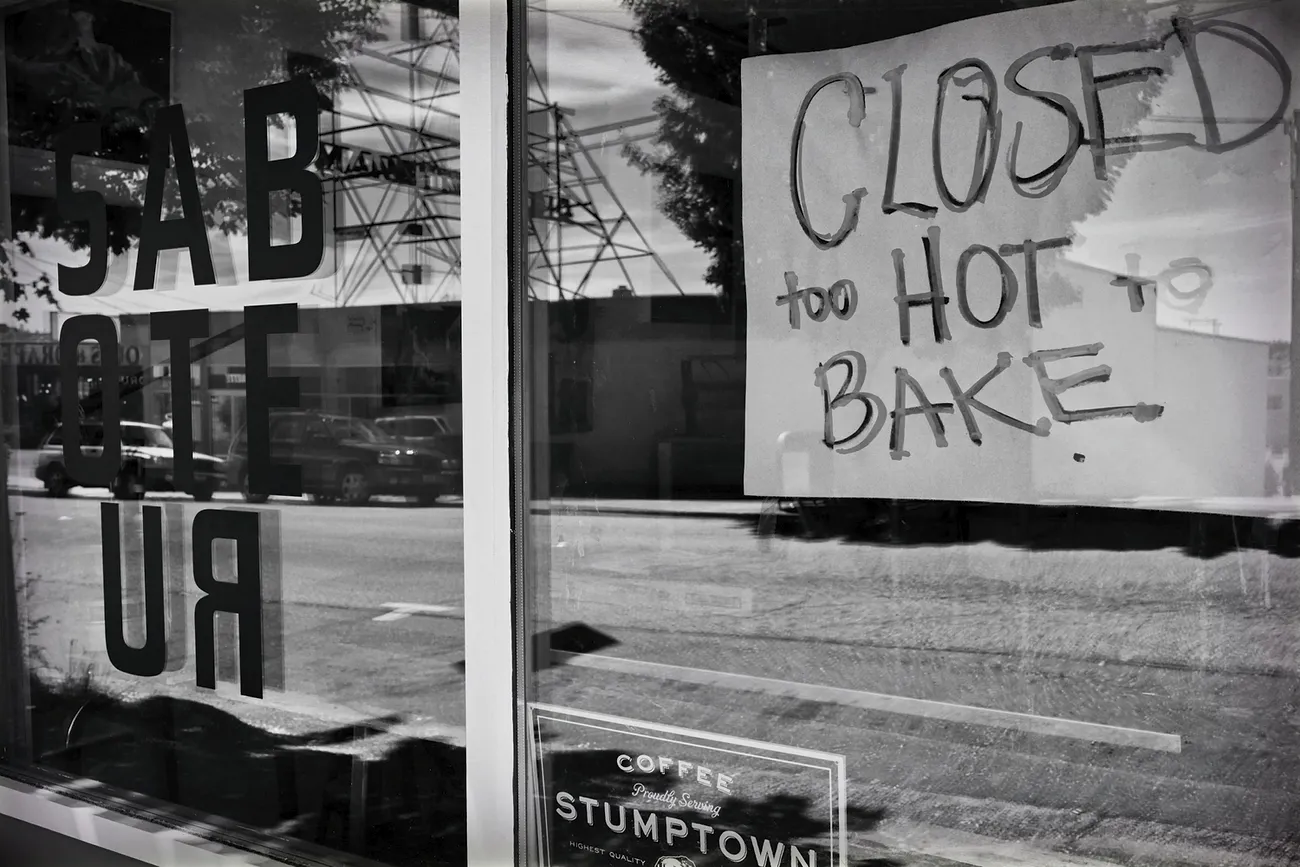 SAB
OTE
UR
CLOSED
too HOT to
BAKE.
COFFEE
Proudly Serving
STUMPTOWN
HIGHEST QUALITY